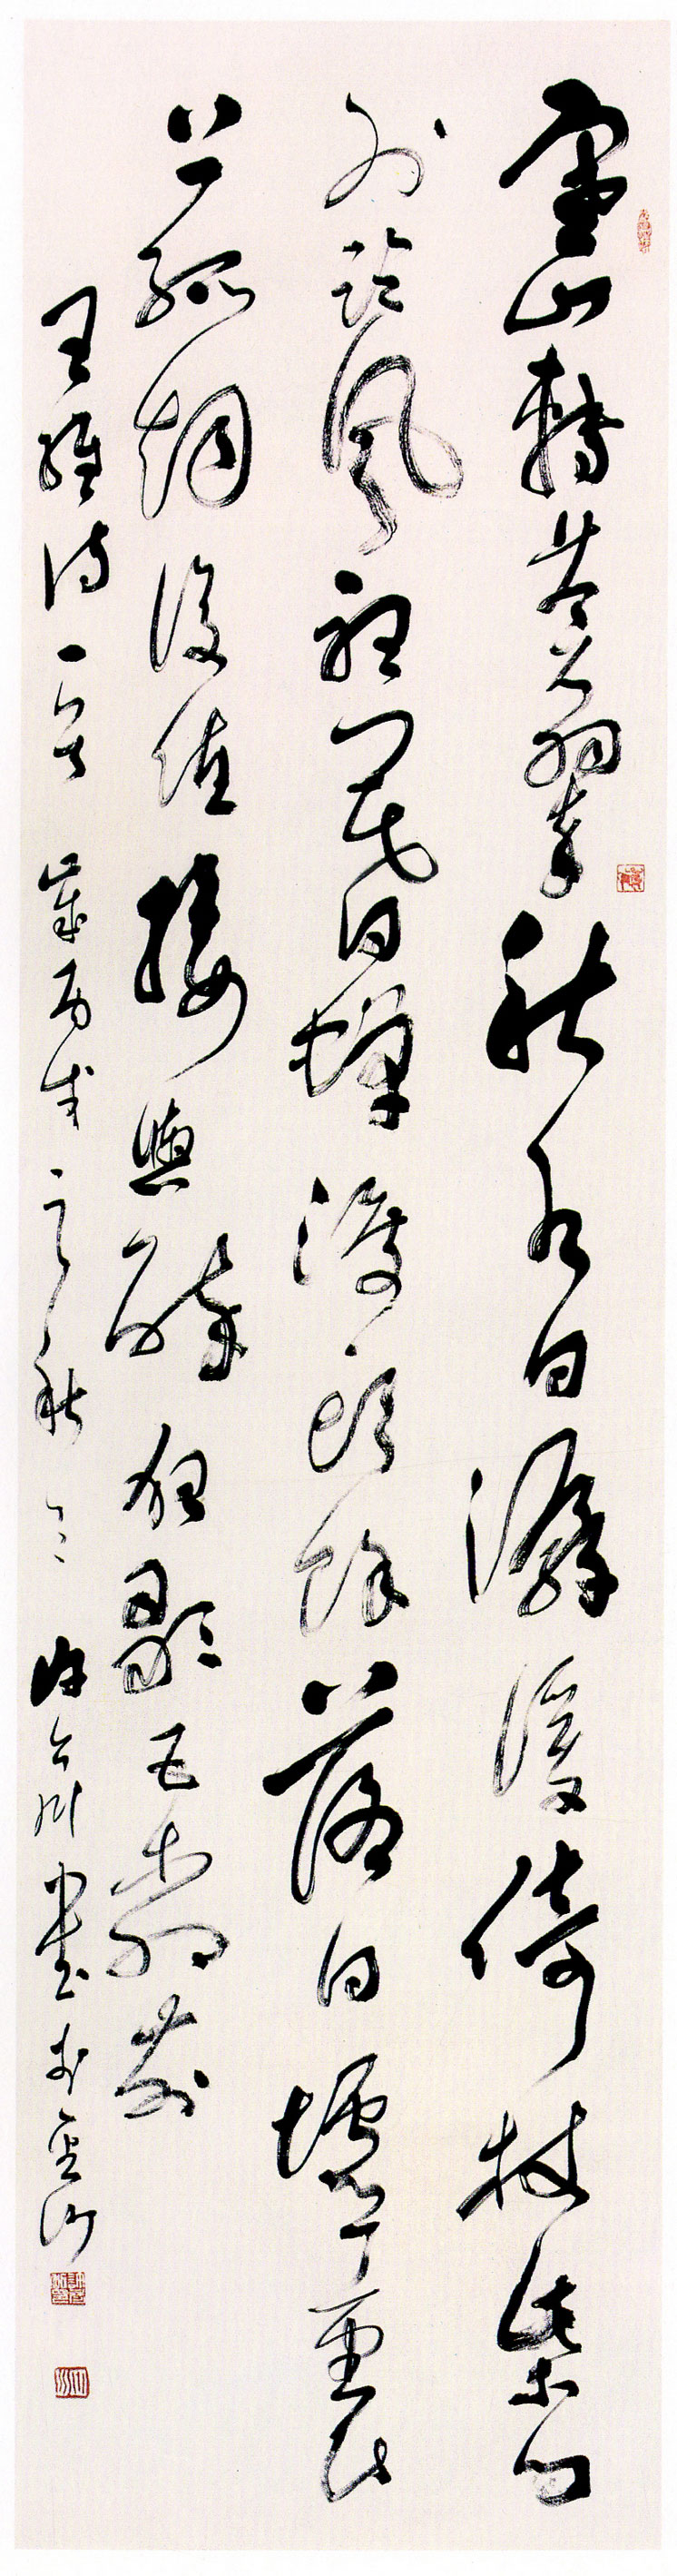 寒山轉蒼翠秋水日潺湲倚杖柴門
外臨風聽暮蟬渡頭餘落日墟里
上孤煙復值接輿醉狂歌五柳前
王維詩一首 歲丙戌之秋 書於